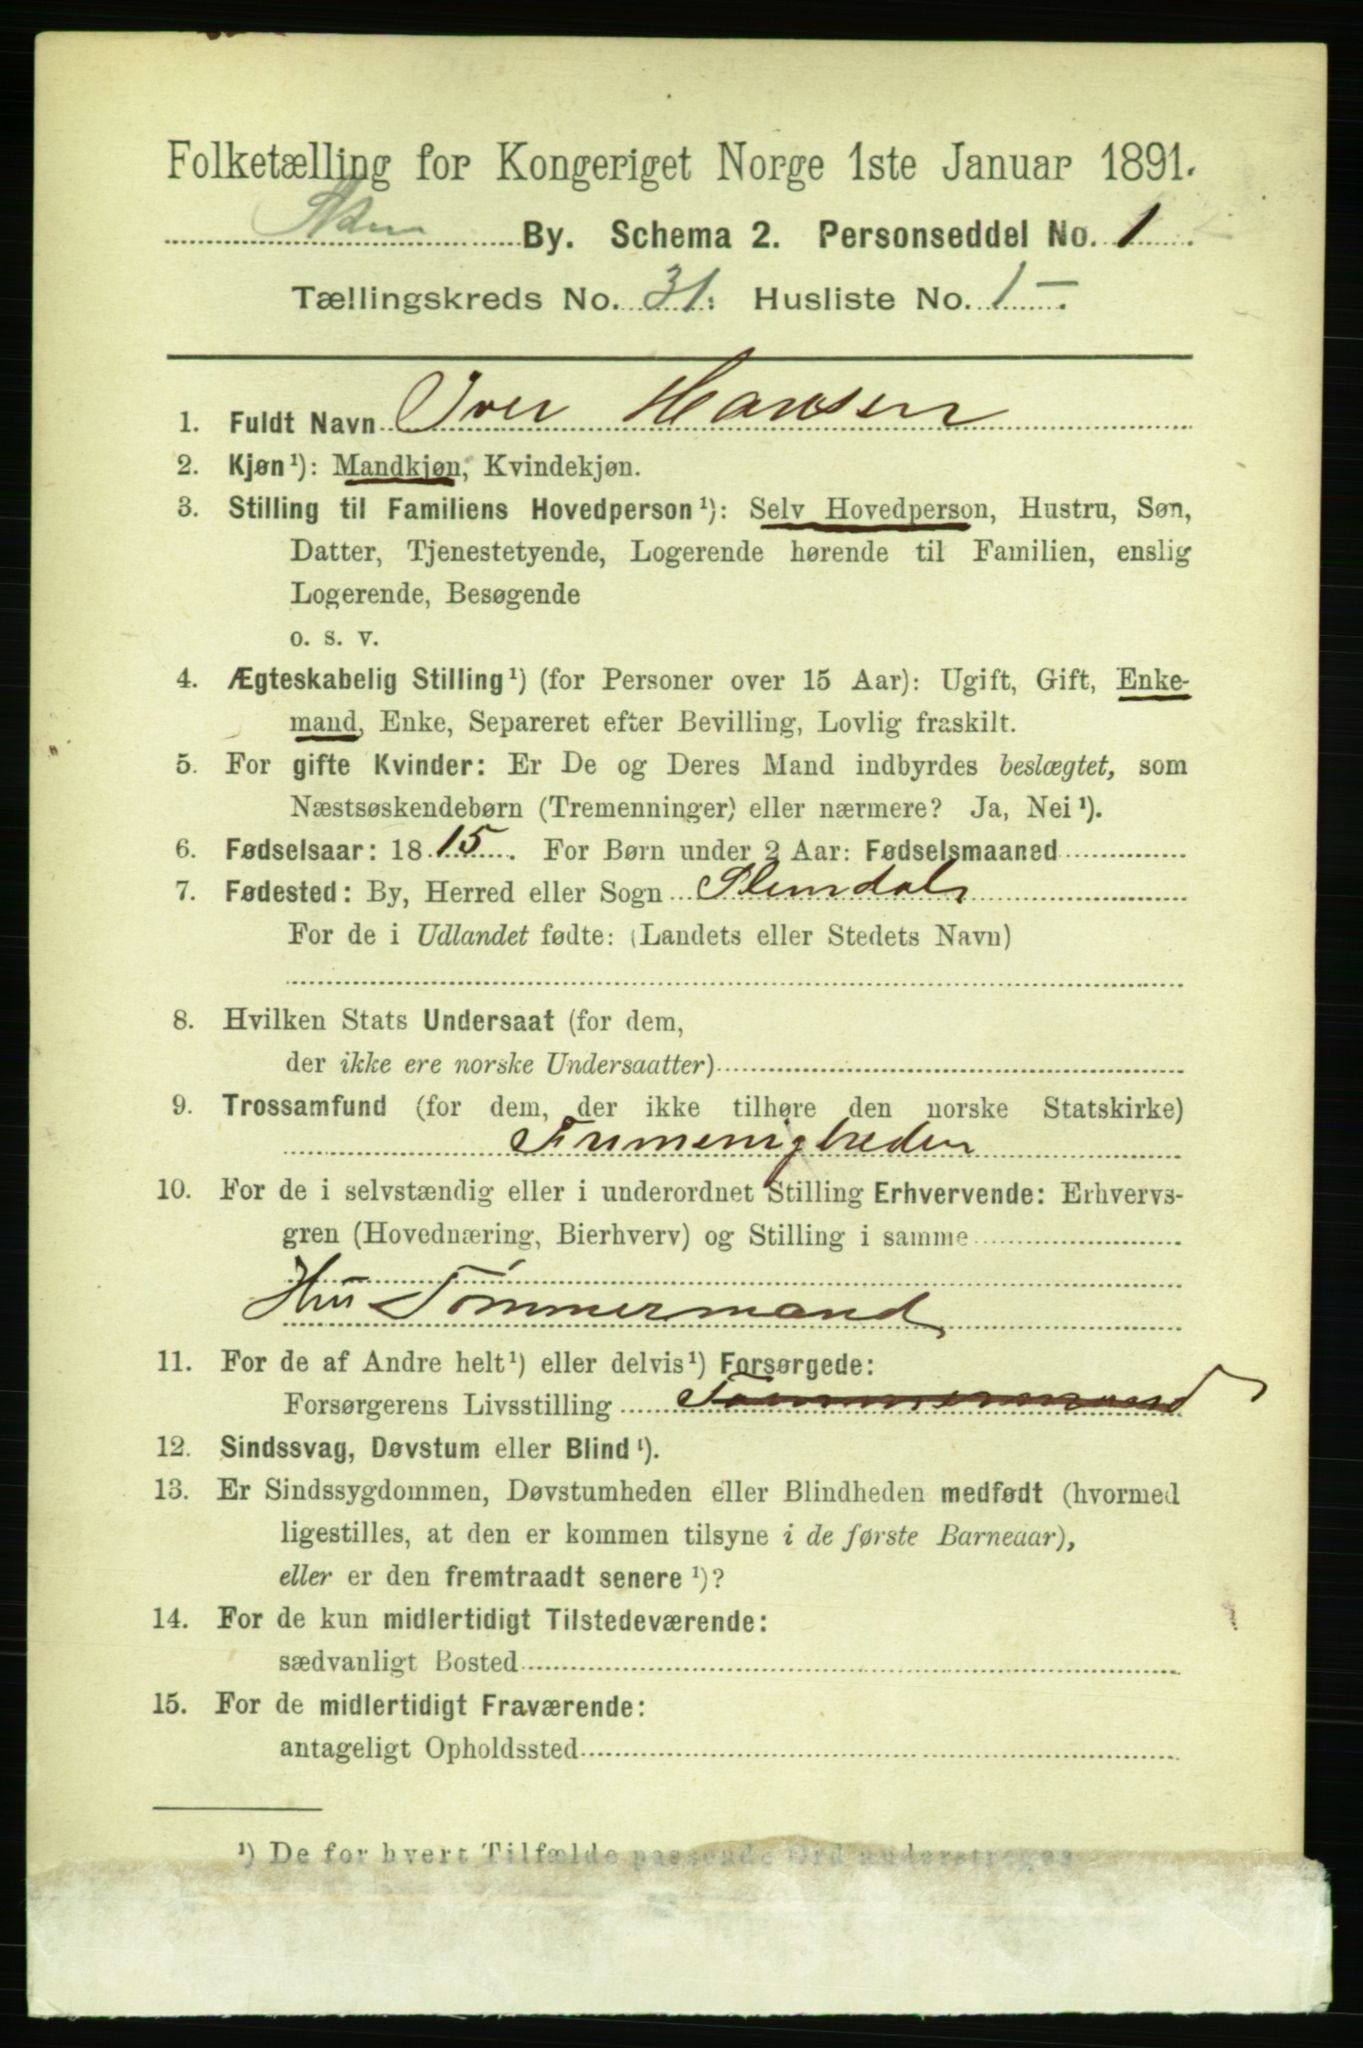 Folketælling for Kongeriget Norge 1ste Januar 1891.
Skien By. Schema 2. Personseddel No. 1
Tællingskreds No. 31. Husliste No. 1
1. Fuldt Navn Iver Hansen
2. Kjøn¹): Mandkjøn, Kvindekjøn.
3. Stilling til Familiens Hovedperson¹): Selv Hovedperson, Hustru, Søn,
Datter, Tjenestetyende, Logerende hørende til Familien, enslig
Logerende, Besøgende
o. s. v.
4. Ægteskabelig Stilling¹) (for Personer over 15 Aar): Ugift, Gift, Enke-
mand, Enke, Separeret efter Bevilling, Lovlig fraskilt.
5. For gifte Kvinder: Er De og Deres Mand indbyrdes beslægtet, som
Næstsøskendebørn (Tremenninger) eller nærmere? Ja, Nei¹).
6. Fødselsaar: 1815. For Børn under 2 Aar: Fødselsmaaned
7. Fødested: By, Herred eller Sogn Slemdal
For de i Udlandet fødte: (Landets eller Stedets Navn)
8. Hvilken Stats Undersaat (for dem,
der ikke ere norske Undersaatter)
9. Trossamfund (for dem, der ikke tilhøre den norske Statskirke)
Frimenigheden
10. For de i selvstændig eller i underordnet Stilling Erhvervende: Erhvervs-
gren (Hovednæring, Bierhverv) og Stilling i samme
Hus Tømmermand
11. For de af Andre helt¹) eller delvis¹) Forsørgede:
Forsørgerens Livsstilling Tømmermand
12. Sindssvag, Døvstum eller Blind¹).
13. Er Sindssygdommen, Døvstumheden eller Blindheden medfødt (hvormed
ligestilles, at den er kommen tilsyne i de første Barneaar),
eller er den fremtraadt senere¹)?
14. For de kun midlertidigt Tilstedeværende:
sædvanligt Bosted
15. For de midlertidigt Fraværende:
antageligt Opholdssted
¹) De for hvert Tilfælde passende Ord understreges